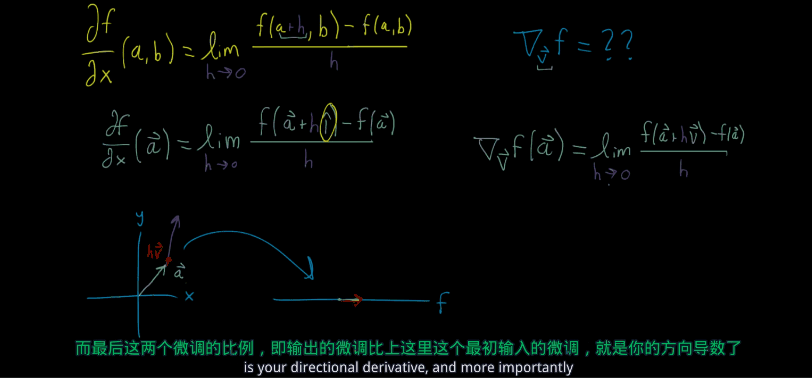 ∂f/∂x (a,b) = lim h→0 (f(a+h, b) − f(a,b))/h
∇_v⃗ f = ??
∂f/∂x (a⃗) = lim h→0 (f(a⃗+hî) − f(a⃗))/h
∇_v⃗ f(a⃗) = lim h→0 (f(a⃗+hv⃗) − f(a⃗))/h
y
hv⃗
a⃗
x
f
而最后这两个微调的比例，即输出的微调比上这里这个最初输入的微调，就是你的方向导数了
is your directional derivative, and more importantly